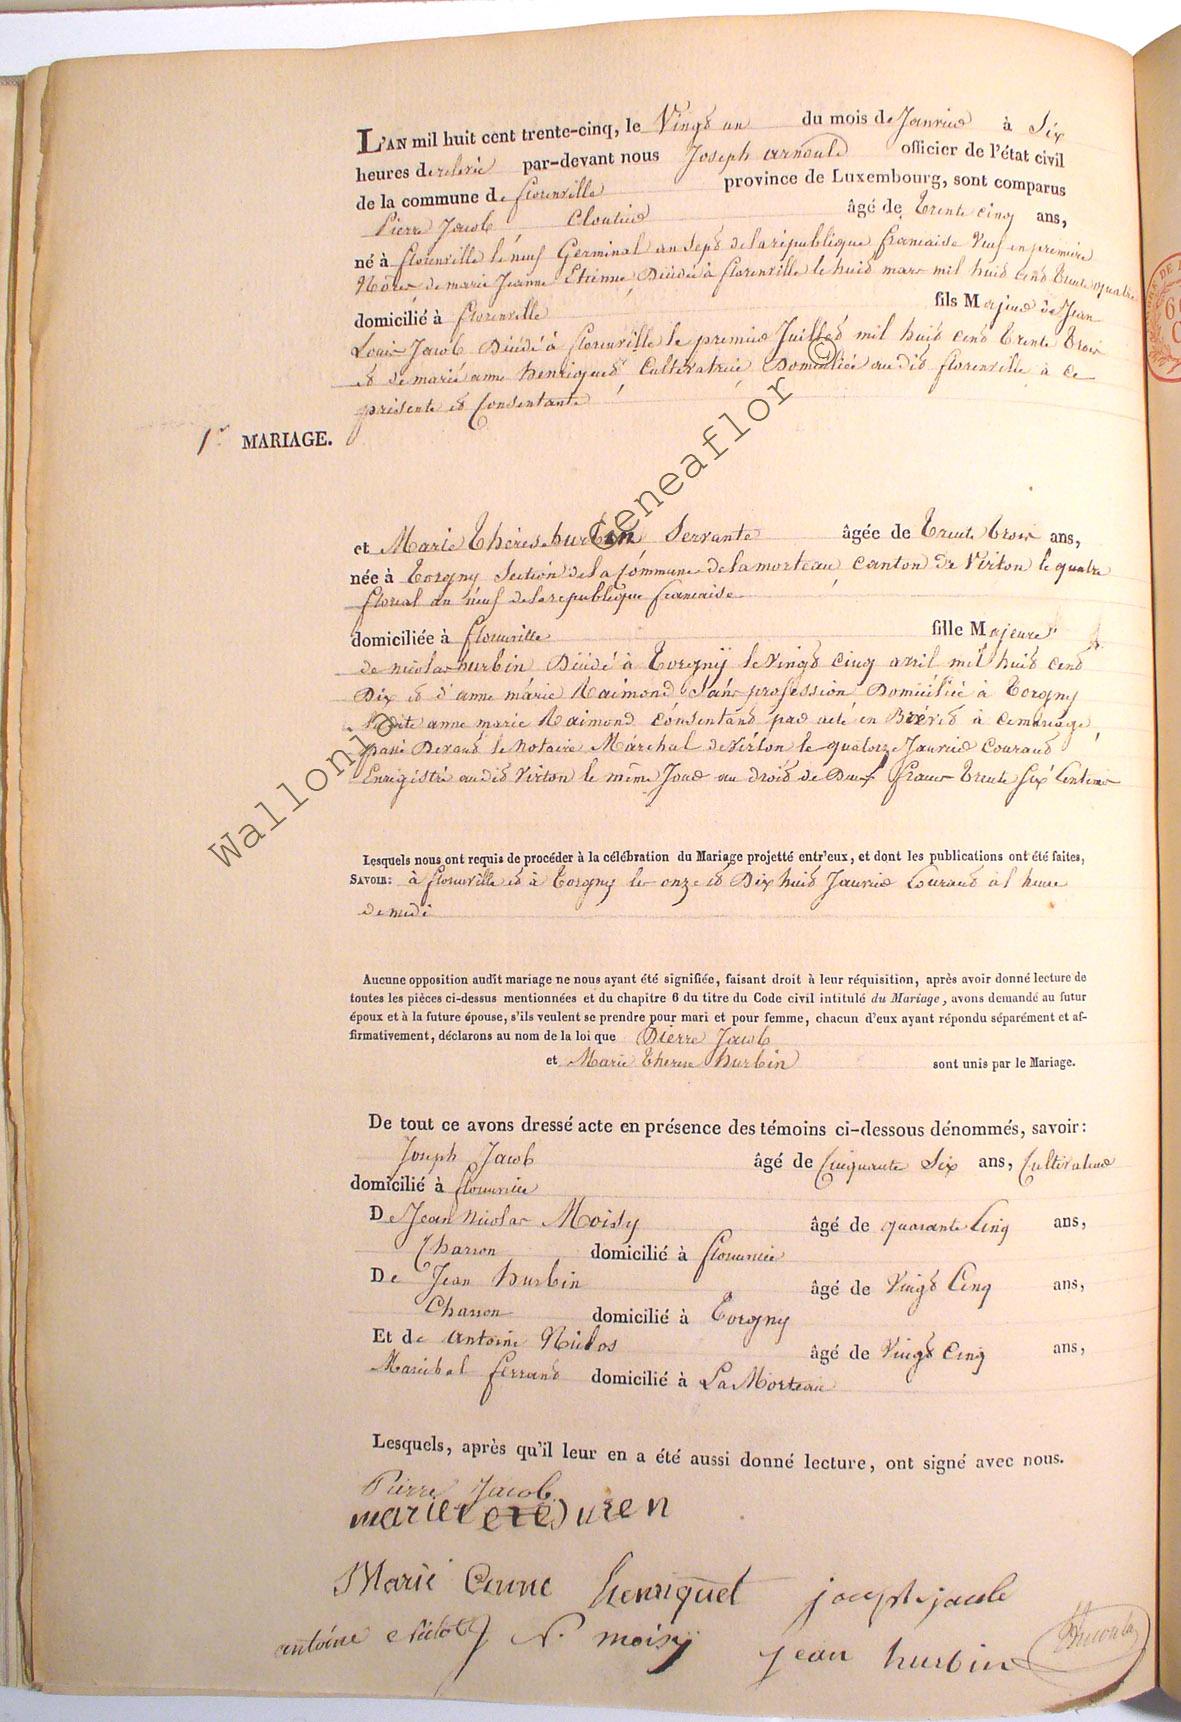 L'AN mil huit cent trente-cinq, le Vingt un du mois de Janvier à Six
heures de relevée par-devant nous Joseph arnould officier de l'état civil
de la commune de florenville province de Luxembourg, sont comparus
Pierre Jacob, Cloutier âgé de trente cinq ans,
né à florenville le neuf Germinal an Sept de la république francaise Veuf en première
Nôces de marie Jeanne Etienne Décédée à florenville le huit mars mil huit cent trente quatre
domicilié à florenville fils Majeur de Jean
Louis Jacob Décédé à florenville le premier Juillet mil huit cent trente trois
et de marie anne henriquet Cultivatrice Domiciliée au dit florenville à ce
présente et Consentante
1er MARIAGE.
et Marie thérèse hurbin Servante âgée de trente trois ans,
née à torgny Section de la Commune de lamorteau canton de Virton le quatre
floréal an neuf de la republique francaise
domiciliée à florenville fille Majeure
de nicolas hurbin Décédé à torgny le vingt cinq avril mil huit cent
Dix et d'anne marie Raimond Sans profession Domiciliée à torgny
ladite anne marie Raimond consentant par acte en Brévet à ce mariage
passé Devant le Notaire Maréchal de virton le quatorze Janvier courant
Enregistré au dit Virton le même Jour au droit de Deux francs trente six Centimes
Lesquels nous ont requis de procéder à la célébration du Mariage projetté entr'eux, et dont les publications ont été faites,
SAVOIR: à florenville et à torgny les onze et Dix huit Janvier Courant à l heure
de midi
Aucune opposition audit mariage ne nous ayant été signifiée, faisant droit à leur réquisition, après avoir donné lecture de
toutes les pièces ci-dessus mentionnées et du chapitre 6 du titre du Code civil intitulé du Mariage, avons demandé au futur
époux et à la future épouse, s'ils veulent se prendre pour mari et pour femme, chacun d'eux ayant répondu séparément et af-
firmativement, déclarons au nom de la loi que Pierre Jacob
et Marie therese hurbin sont unis par le Mariage.
De tout ce avons dressé acte en présence des témoins ci-dessous dénommés, savoir:
Joseph Jacob âgé de Cinquante Six ans, Cultivateur
domicilié à florenville
De Jean Nicolas Moisy âgé de quarante Cinq ans,
Charron domicilié à florenville
De Jean hurbin âgé de Vingt Cinq ans,
Charron domicilié à torgny
Et de antoine Nidos âgé de Vingt Cinq ans,
Maréchal ferrant domicilié à La Morteau
Lesquels, après qu'il leur en a été aussi donné lecture, ont signé avec nous.
Pierre Jacob
Marie anne henriquet joseph jacob
antoine N. moisy jean hurbin
Wallonia Geneaflor ©